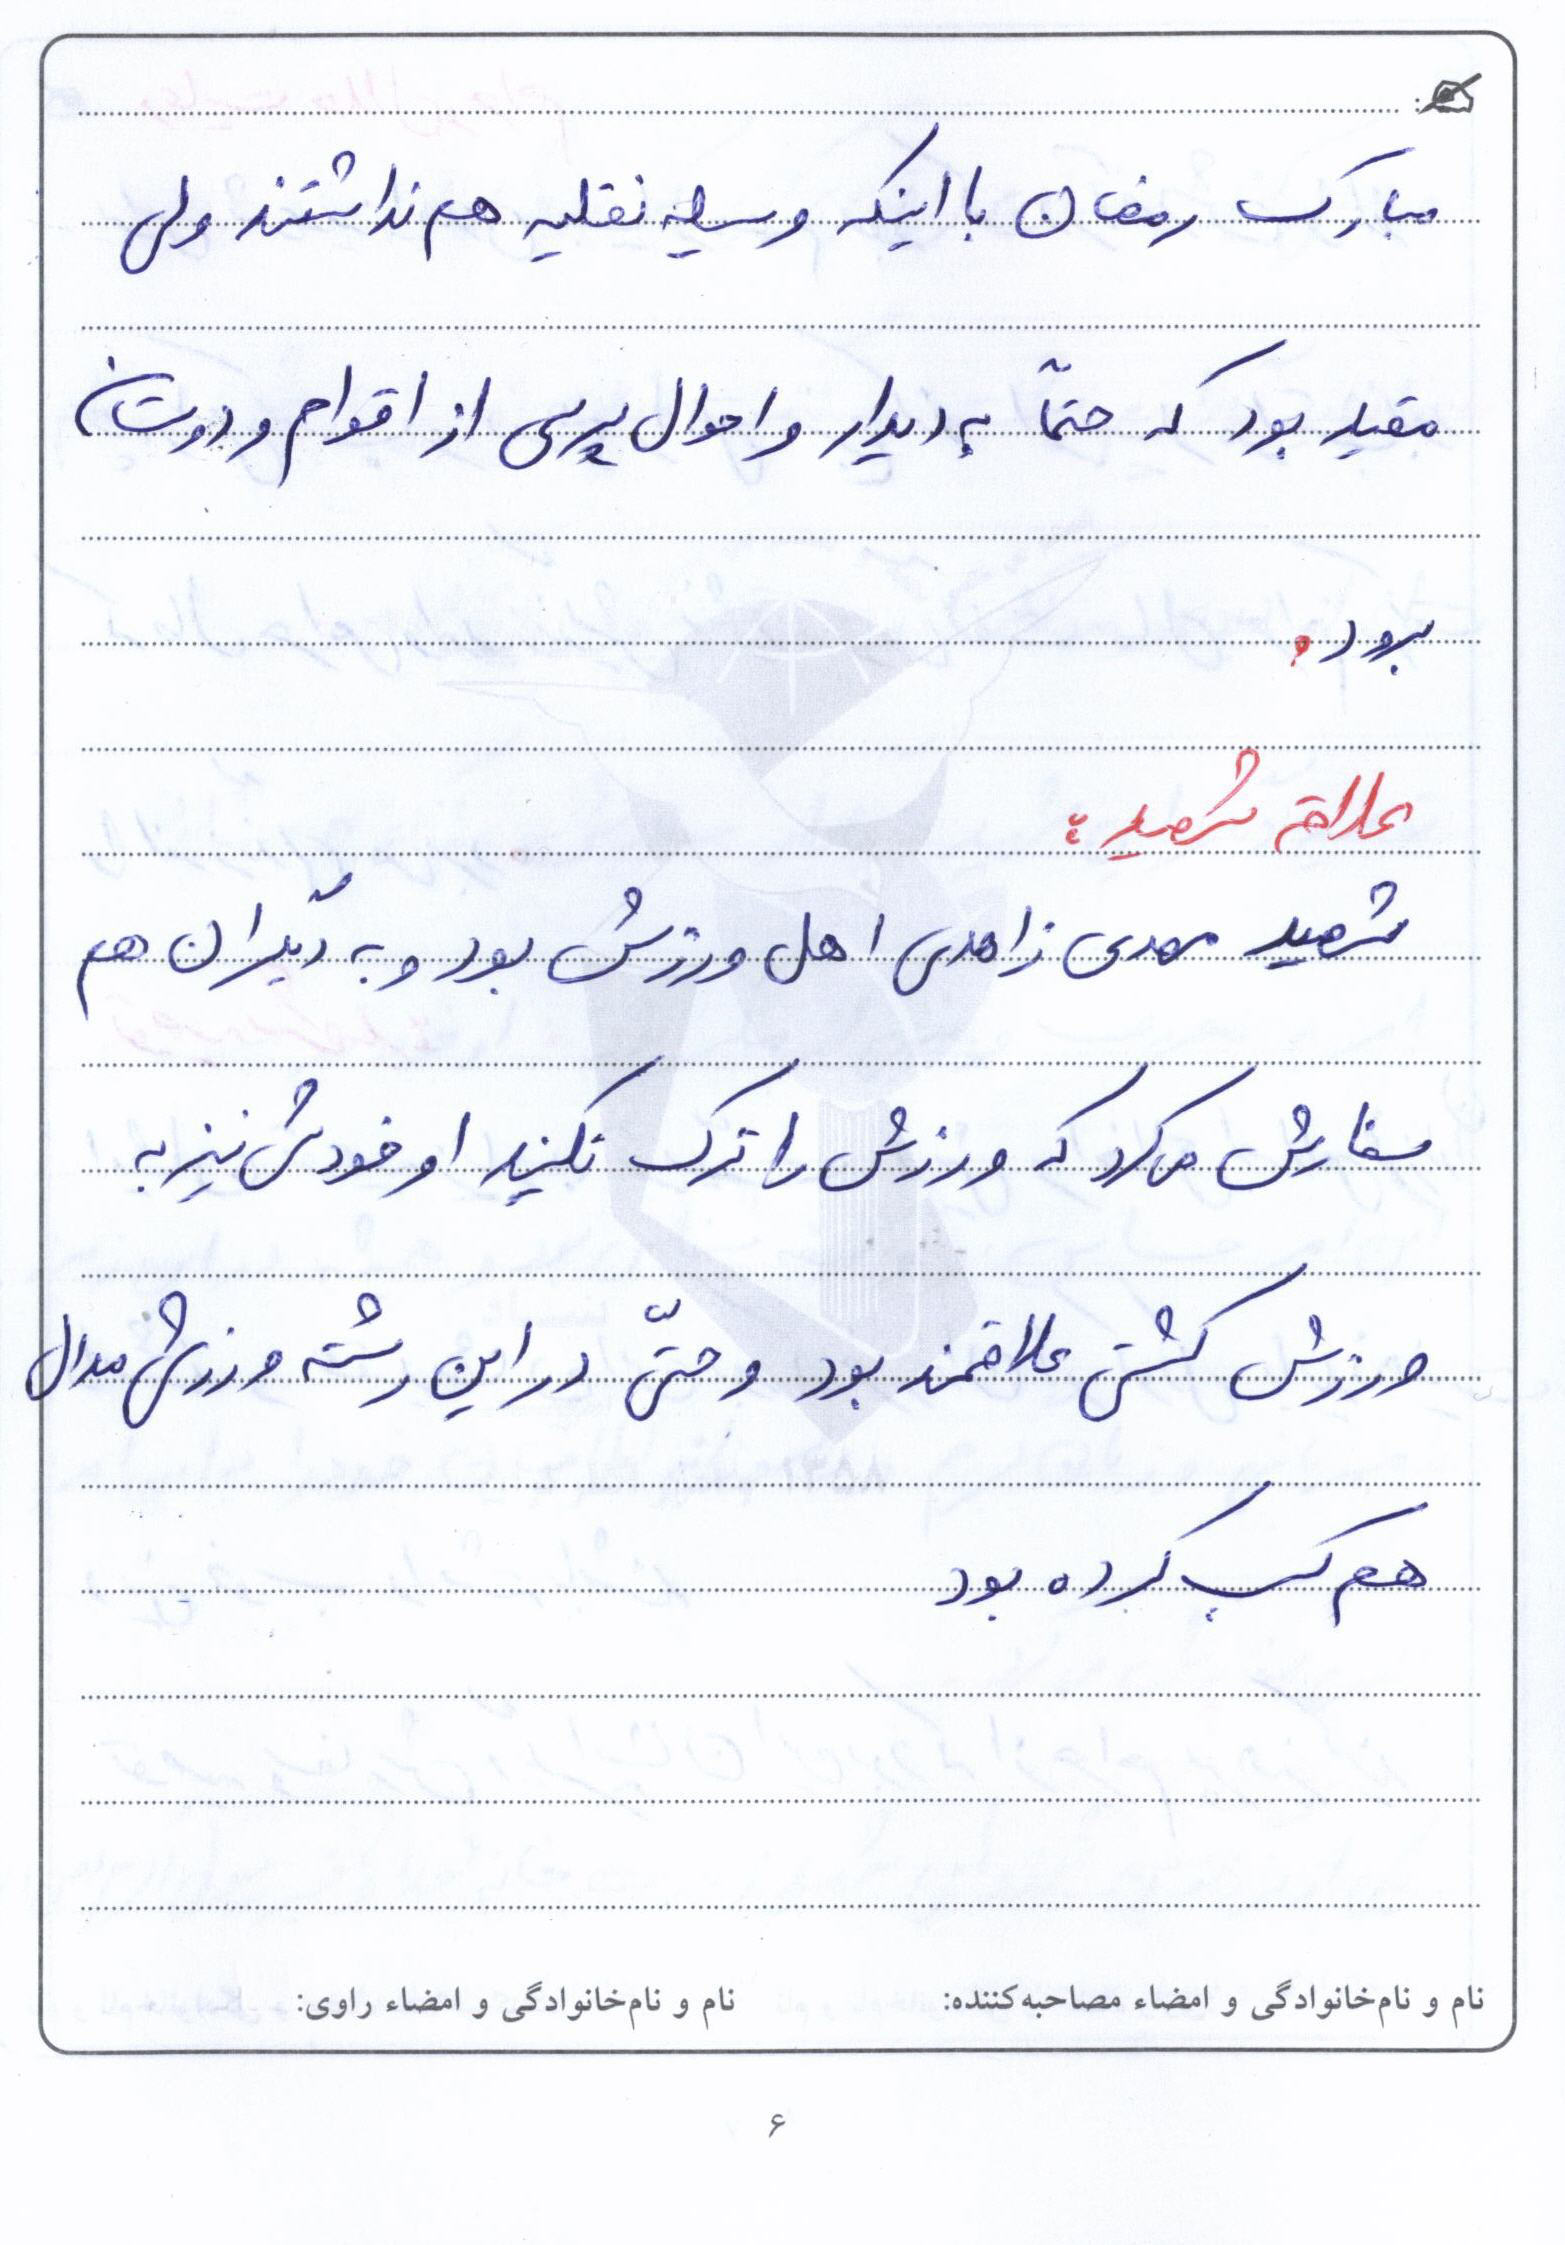 مبارک رمضان با اینکه وسیله نقلیه هم نداشتند ولی
مقید بود که حتماً به دیدار و احوال پرسی از اقوام و دوستان
برود.
علاقه شهید:
شهید مهدی زاهدی اهل ورزش بود و به دیگران هم
سفارش می‌کرد که ورزش را ترک نکنید او خودش نیز به
ورزش کشتی علاقمند بود و حتّی در این رشته ورزشی مدال
هم کسب کرده بود
نام و نام‌خانوادگی و امضاء مصاحبه‌کننده: نام و نام‌خانوادگی و امضاء راوی:
۶